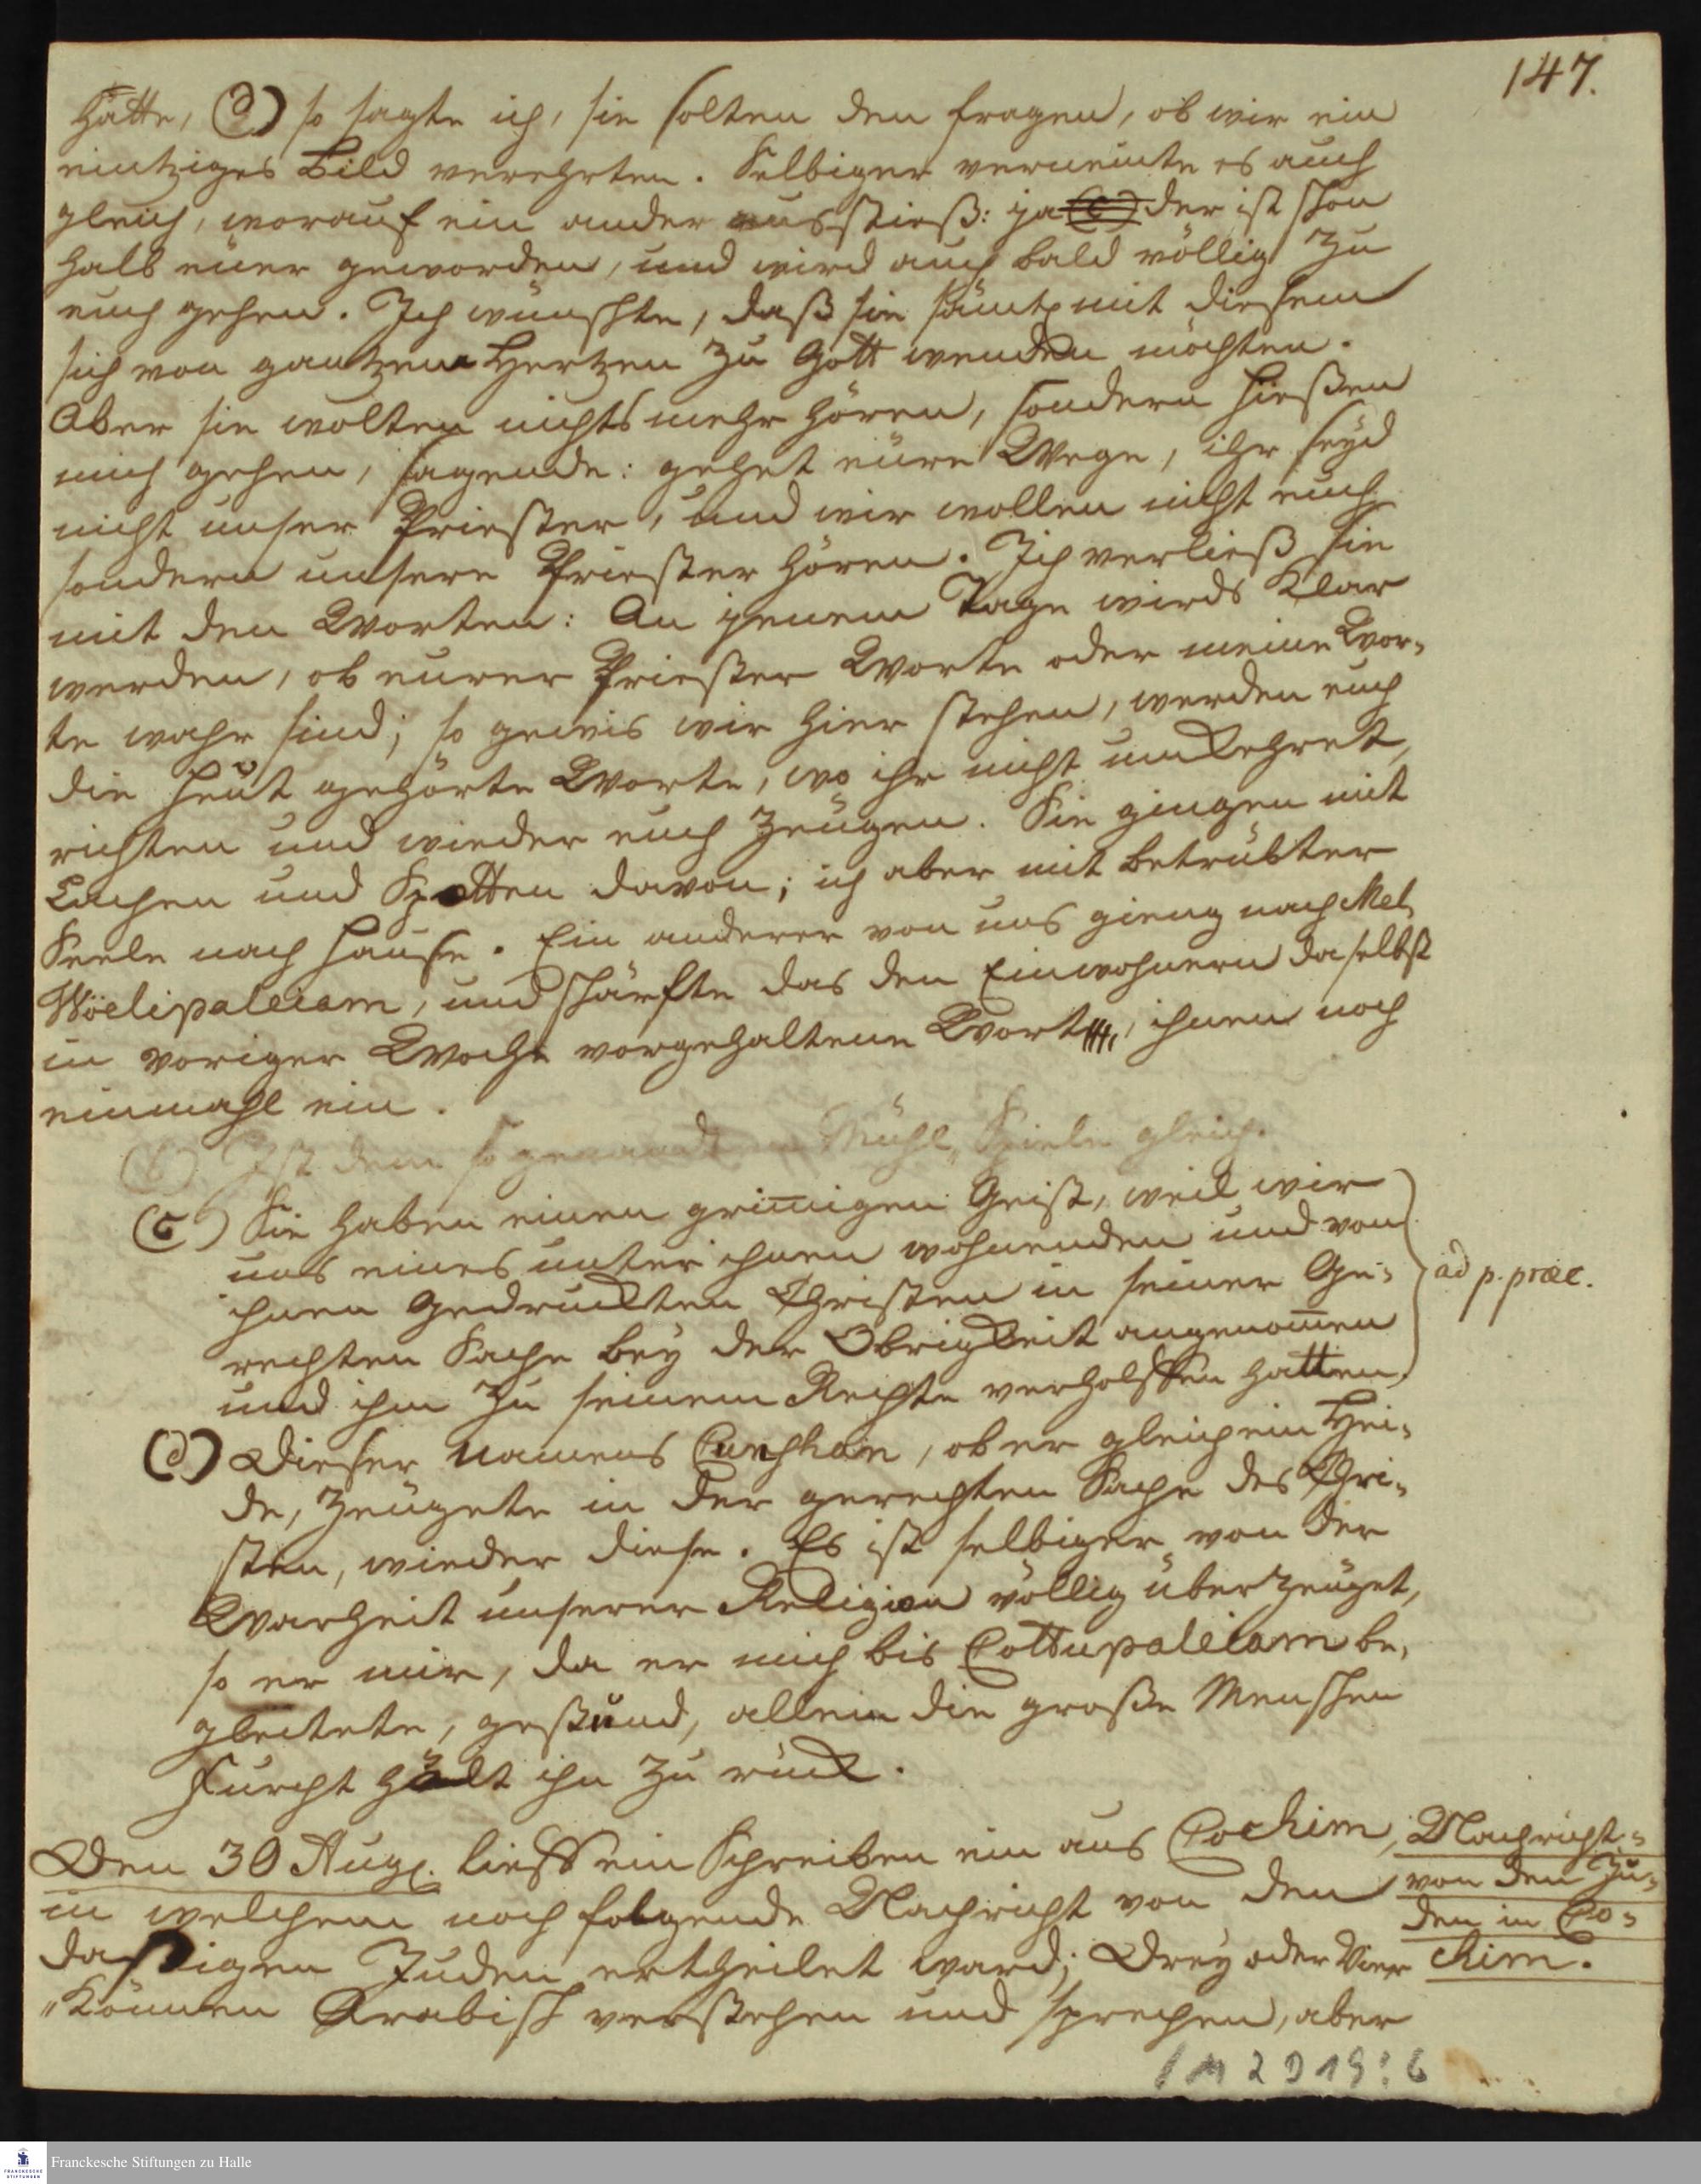 147.
hätte, (d) so sagte ich, sie solten den fragen, ob wir ein
eintziges Bild verehrten. Selbiger verneinte es auch
gleich, worauf ein ander ausstieß: ja (c) der ist schon
halb eüer geworden, und wird auch bald völlig zu
euch gehen. Ich wünschte, daß sie sämtl. mit diesem
sich von gantzem Hertzen zu Gott wenden möchten.
Aber sie wolten nichts mehr hören, sondern hießen
mich gehen, sagende: gehet eüre Wege, ihr seyd
nicht unser Priester, und wir wollen nicht euch
sondern unsere Priester hören. Ich verließ sie
mit den Worten: An jenem Tage wirds klar
werden, ob eurer Priester Worte oder meine Wor-
te wahr sind; so gewis wir hier stehen, werden euch
die heut gehörte Worte, wo ihr nicht umkehret,
richten und wieder euch zeugen. Sie gingen mit
Lachen und Spotten davon; ich aber mit betrübter
Seele nach Hause. Ein anderer von uns gieng nach Mel
Wöelipaleiam, und schärfte das den Einwohnern daselbst
in voriger Woche vorgehaltene Wort, ihnen noch
einmahl ein.
(b) Ist dem so genandten Mühl-Spiele gleich.
(c) Sie haben einen grim̅igen Geist, weil wir
uns eines unter ihnen wohnenden und von
ihnen gedruckten Christen in seiner Ge-
rechten Sache bey der Obrigkeit angenom̅en
und ihm zu seinem Rechte verholffen hatten.
ad p. præc.
(d) Dieser namens Curshan, ob er gleich ein Hei-
de, zeugete in der gerechten Sache des Chri-
sten, wieder diese. Es ist selbiger von der
Warheit unserer Religion völlig überzeuget,
so er mir, da er mich bis Cottupaleiam be-
gleitete, gestund, allein die große Menschen
Furcht hält ihn zu rück.
Den 30 Aug. lieff ein Schreiben ein aus Cochim,
in welchem noch folgende Nachricht von den
dasigen Juden ertheilet ward; Drey oder Vier
"können Arabisch verstehen und sprechen, aber
Nachricht
von den Ju-
den in Co-
chim.
1 M 2 D 19 : 6
FRANCKESCHE
STIFTUNGEN
Franckesche Stiftungen zu Halle